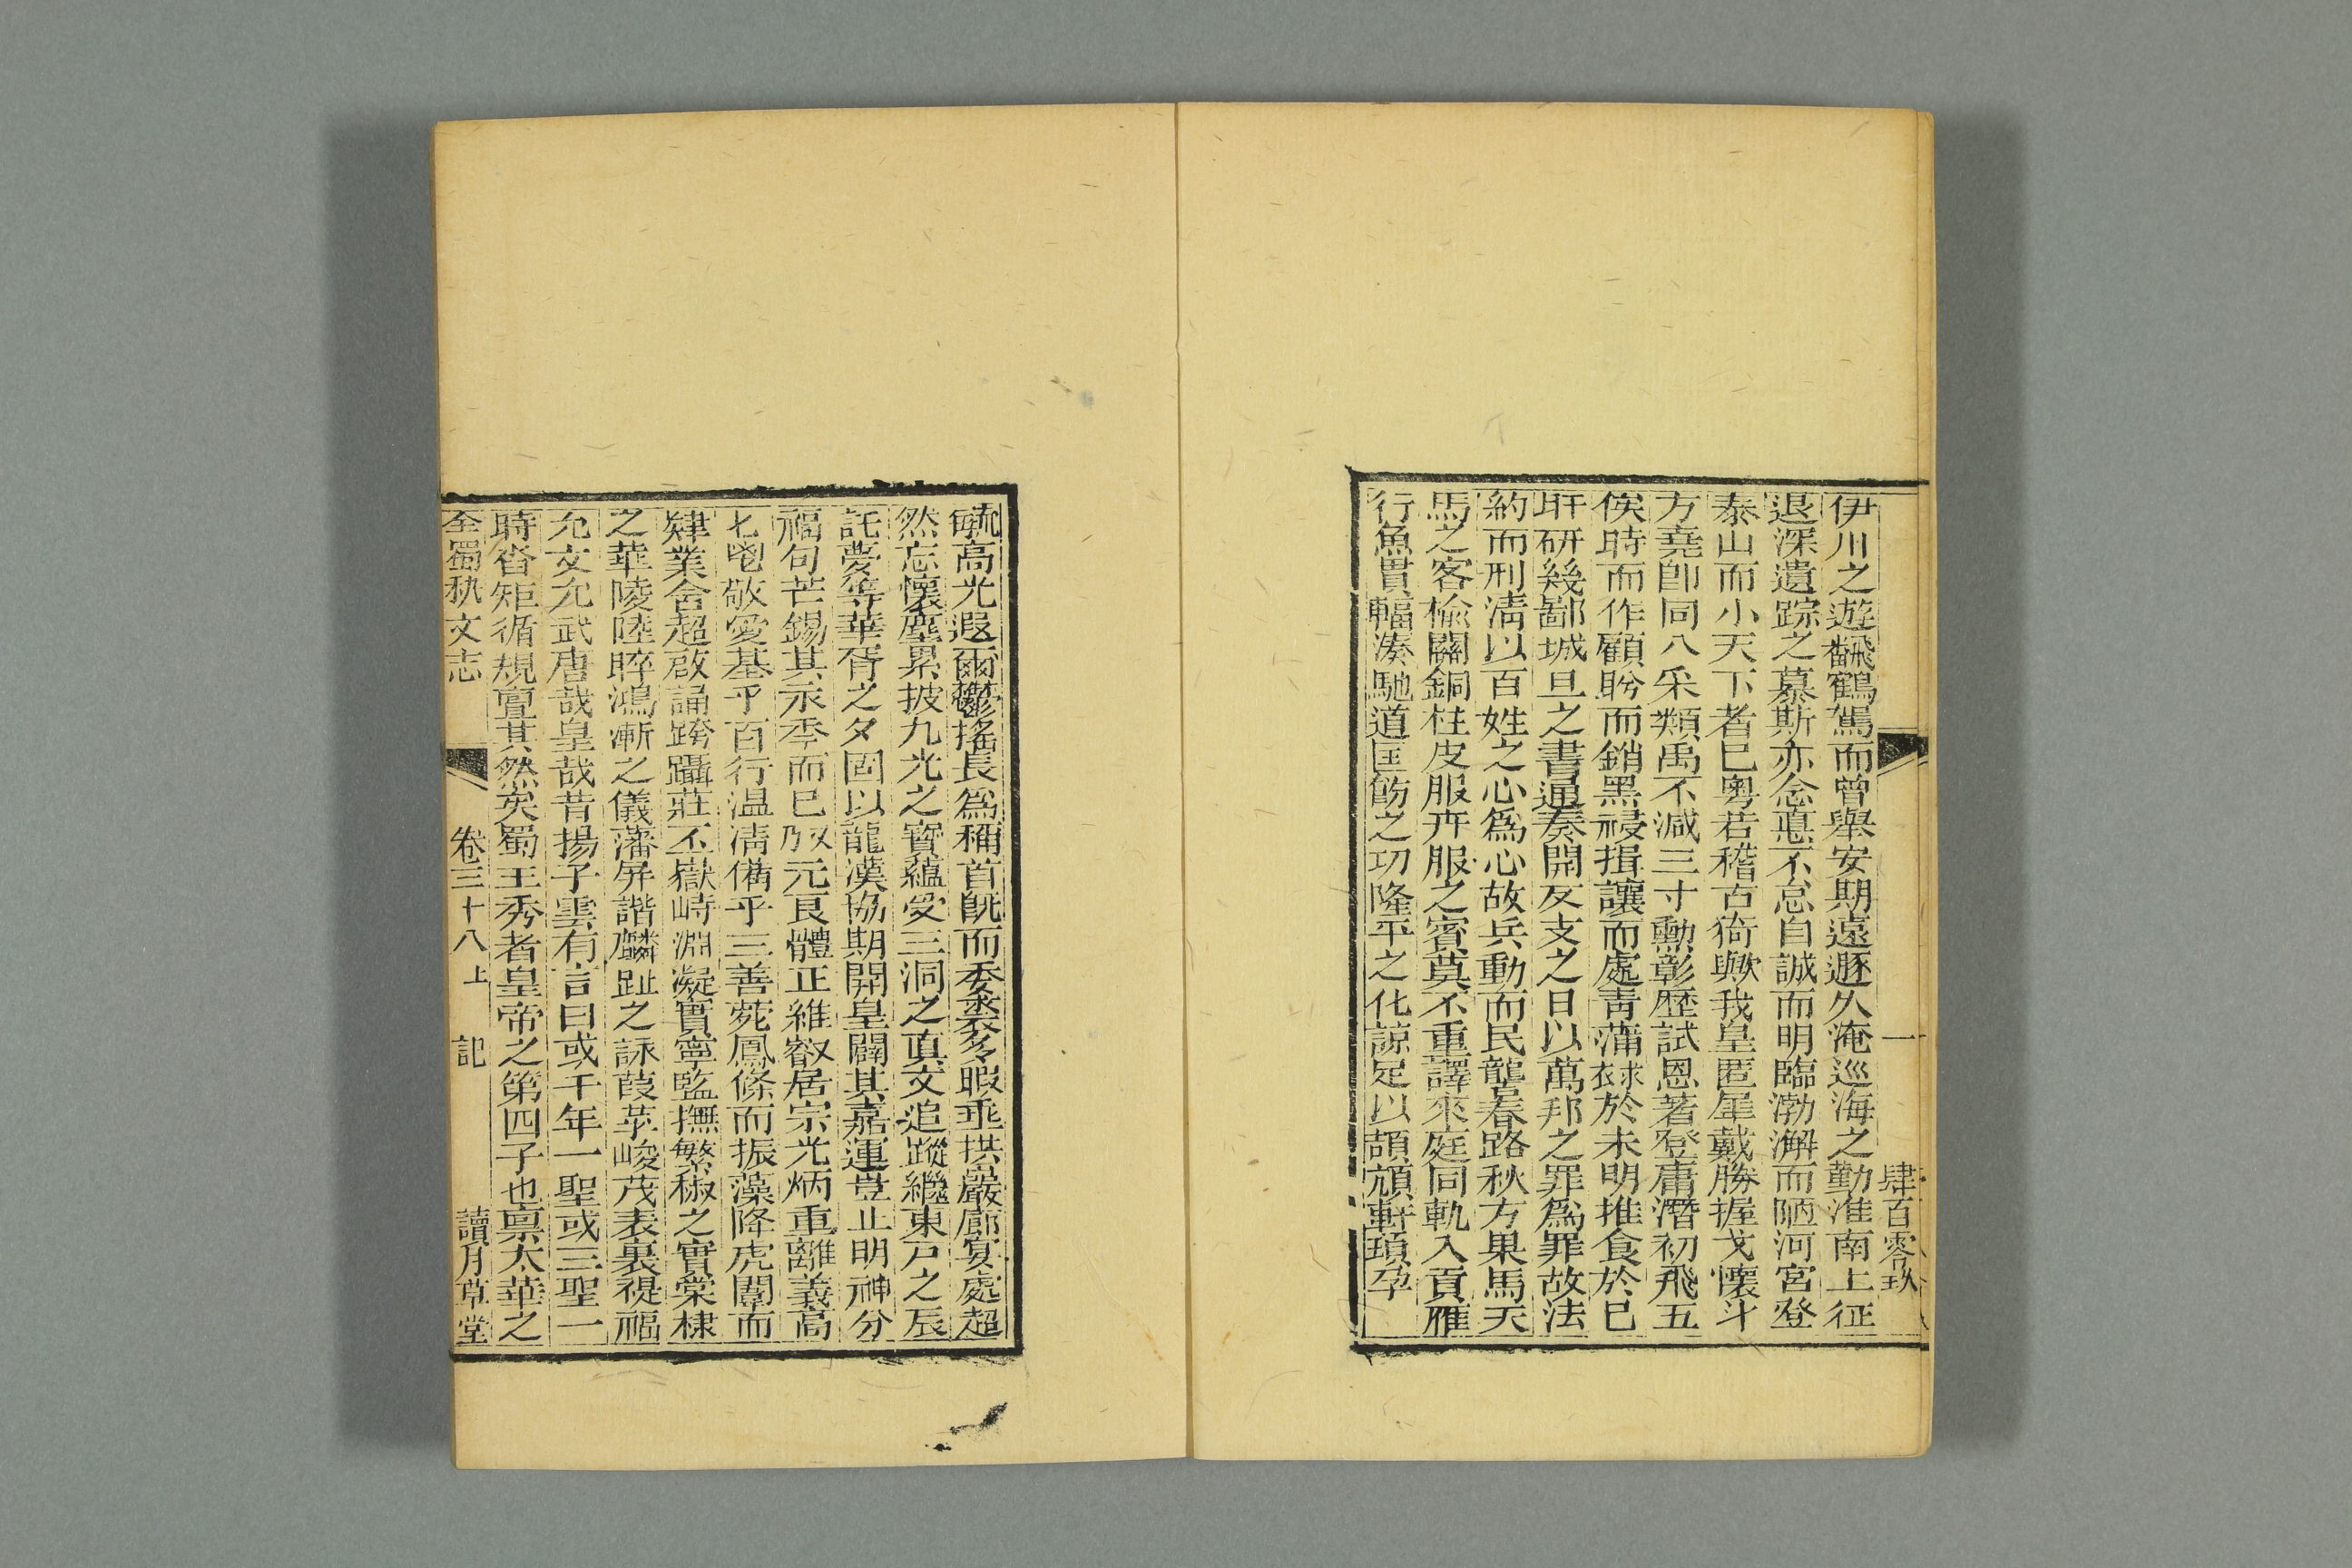 肆百零玖
伊川之遊飜鶴駕而曾舉安期遠遯久淹巡海之勤淮南上征
退深遺踪之慕斯亦念惪不怠自誠而明臨渤澥而陋河宮登
泰山而小天下者巳粵若稽古猗歟我皇匿犀戴勝握戈懷斗
方堯卽同八采類禹不減三寸勳彰歷試恩著登庸潛初飛五
俟時而作顧盻而銷黑祲揖讓而處靑蒲求衣於未明推食於巳
旰研幾鄗城旦之書通奏開反支之日以萬邦之罪爲罪故法
約而刑淸以百姓之心爲心故兵動而民龔春路秋方果馬天
馬之客楡關銅柱皮服卉服之賓莫不重譯來庭同軌入貢雁
行魚貫輻湊馳道匡飭之功隆平之化諒足以頡頏軒頊孕
毓高光遐爾鬱搖長爲稱首旣而委裘多暇垂拱巖廊宴處超
然忘懷塵累披九光之寶蘊受三洞之眞文追蹤繼東戸之辰
託夢等華胥之夕固以龍漢協期開皇闢其嘉運豈止明神分
福句芒錫其永季而巳及乃元良體正維叡居宗光炳重離義高
匕鬯敬愛基乎百行温凊僃乎三善菀鳳條而振藻降虎闈而
肄業舍超啟誦跨躡莊丕嶽峙淵凝實寧監撫繁椒之實棠棣
之華陵陸睟鴻漸之儀藩屏諧麟趾之詠葭莩峻茂表裏禔福
允文允武唐哉皇哉昔揚子雲有言曰或千年一聖或三聖一
時沓矩循規亶其然矣蜀王秀者皇帝之第四子也禀太華之
全蜀秇文志 卷三十八上 記 讀月草堂